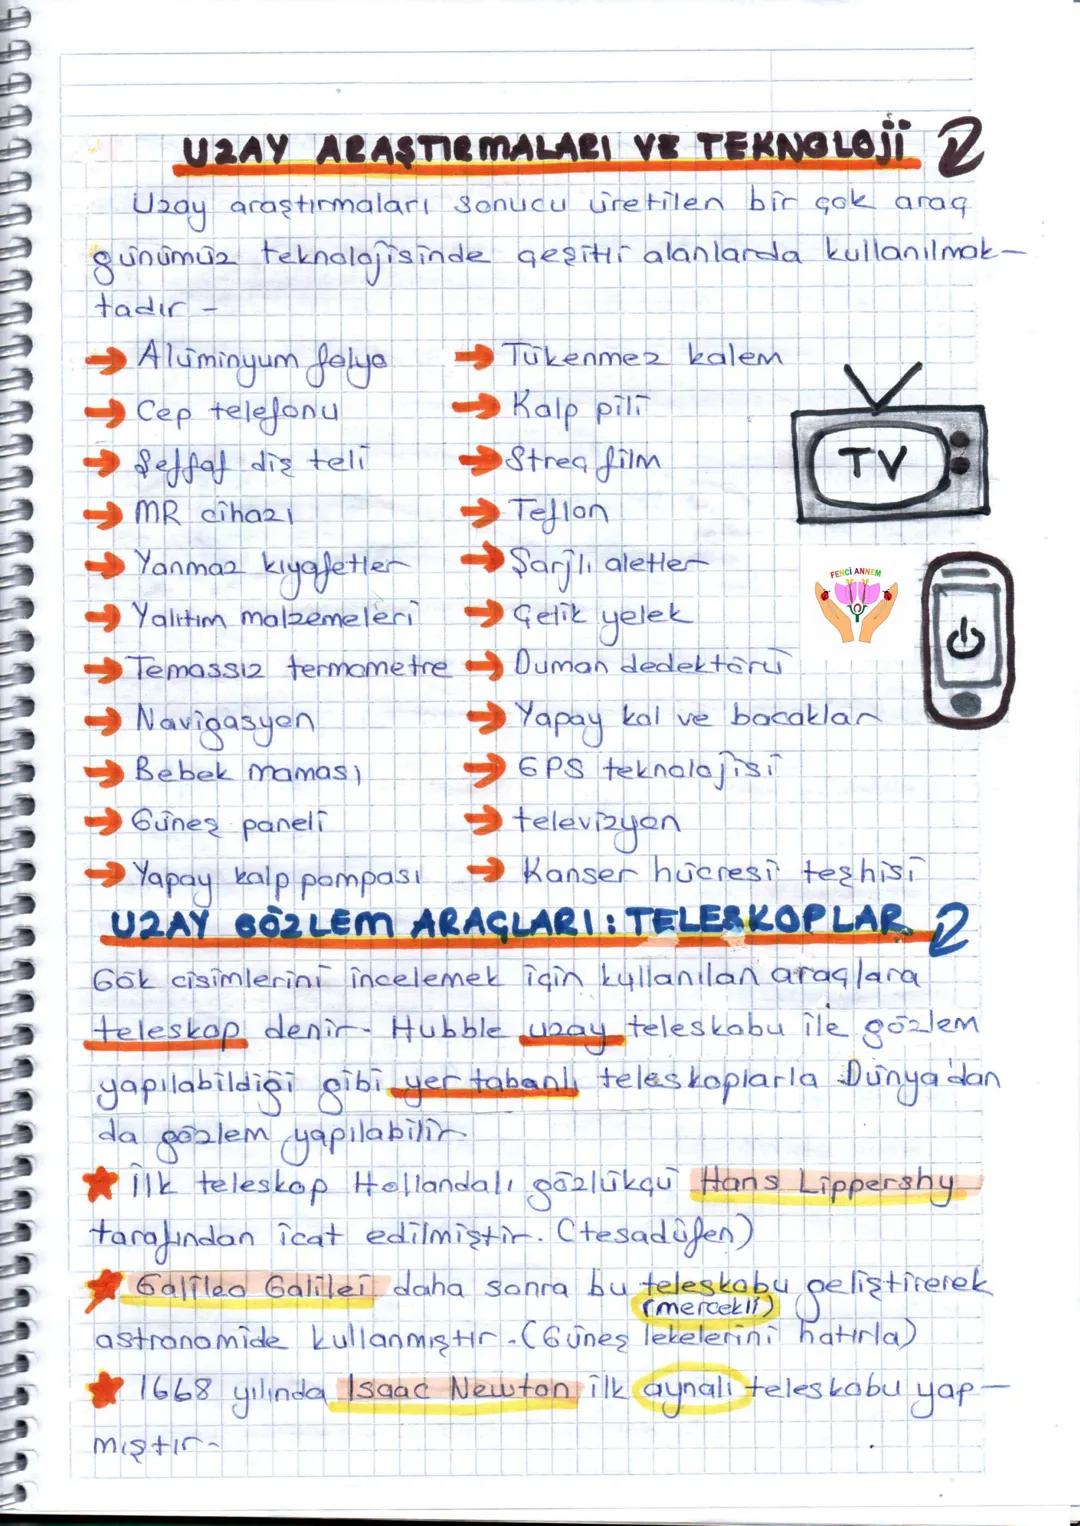 UZAY ARAŞTIRMALARI VE TEKNOLOJİ
Uzay araştırmaları sonucu üretilen bir çok araç
günümüz teknolojisinde çeşitli alanlarda kullanılmak-
tadır.
Alüminyum folyo
Cep telefonu
Şeffaf diş teli
MR cihazı
Yanmaz kıyafetler
Yalıtım malzemeleri
Temassız termometre
Navigasyon
Bebek maması
Güneş paneli
Yapay kalp pompası
Tükenmez kalem
Kalp pili
Streç film
Teflon
Şarjlı aletler
Çelik yelek
Duman dedektörü
Yapay kol ve bacaklar
GPS teknolojisi
televizyon
Kanser hücresi teşhisi
TV
FENCİ ANNEM
UZAY GÖZLEM ARAÇLARI: TELESKOPLAR
Gök cisimlerini incelemek için kullanılan araçlara
teleskop denir. Hubble uzay teleskobu ile gözlem
yapılabildiği gibi yer tabanlı teleskoplarla Dünya'dan
da gözlem yapılabilir.
İlk teleskop Hollandalı gözlükçü Hans Lippershy
tarafından icat edilmiştir. (tesadüfen)
Galileo Galilei daha sonra bu teleskobu geliştirerek
(mercekli)
astronomide kullanmıştır. (Güneş lekelerini hatırla)
1668 yılında Isaac Newton ilk aynalı teleskobu yap-
mıştır.